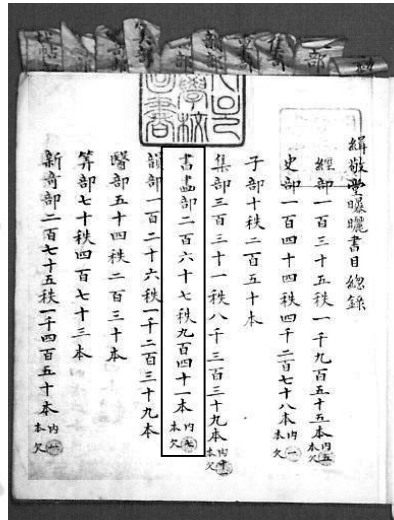 緝敬堂曝曬書目總錄
經部一百三十五秩一千九百五十五本內五本欠
史部一百四十四秩四千二百七十八本內一本欠
子部十秩二百五十本
集部三百三十一秩八千三百三十九本內本欠
書畫部二百六十七秩九百四十一本內七本欠
韻部一百二十六秩一千二百三十九本
醫部五十四秩二百三十本
筭部七十秩四百七十三本
新奇部二百七十五秩一千四百五十本內一本欠